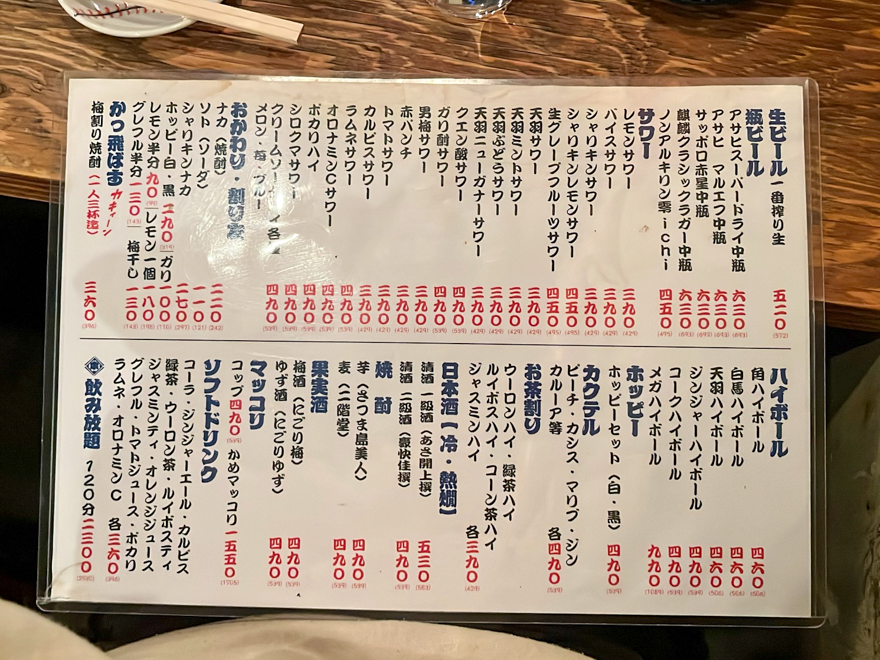 生ビール 一番搾り生 五二〇 (572)
瓶ビール
アサヒスーパードライ中瓶 六三〇 (693)
アサヒ マルエフ中瓶 六三〇 (693)
サッポロ赤星中瓶 六三〇 (693)
麒麟クラシックラガー中瓶 六三〇 (693)
ノンアルキリン零ichi 四五〇 (495)
サワー
レモンサワー 三九〇 (429)
バイスサワー 三九〇 (429)
シャリキンサワー 三九〇 (429)
シャリキンレモンサワー 四五〇 (495)
生グレープフルーツサワー 四五〇 (495)
天羽サワー 三九〇 (429)
天羽ミントサワー 三九〇 (429)
天羽ぶどうサワー 三九〇 (429)
天羽ニューガナーサワー 三九〇 (429)
クエン酸サワー 四九〇 (539)
ガリ酎サワー 四九〇 (539)
男梅サワー 三九〇 (429)
赤パンチ 三九〇 (429)
トマトサワー 三九〇 (429)
カルピスサワー 三九〇 (429)
ラムネサワー 四九〇 (539)
オロナミンCサワー 四九〇 (539)
ポカリハイ 四九〇 (539)
シロクマサワー 四九〇 (539)
クリームソーダハイ各種 四九〇 (539)
メロン・苺・ブルー
おかわり・割り材
ナカ(焼酎) 二二〇 (242)
ソト(ソーダ) 一一〇 (121)
シャリキンナカ 二七〇 (297)
ホッピー白・黒 二九〇 (319) ガリ 一〇〇 (110)
レモン半分 九〇 (99) レモン一個 一八〇 (198)
グレフル半分 一三〇 (143) 梅干し 一三〇 (143)
かっ飛ばす カキィーン
梅割り焼酎(一人三杯迄) 三六〇 (396)
ハイボール
角ハイボール 四六〇 (506)
白馬ハイボール 四六〇 (506)
天羽ハイボール 四六〇 (506)
ジンジャーハイボール 四九〇 (539)
コークハイボール 四九〇 (539)
メガハイボール 九九〇 (1089)
ホッピー
ホッピーセット(白・黒) 四九〇 (539)
カクテル
ピーチ・カシス・マリブ・ジン
カルーア等 各四九〇 (539)
お茶割り
ウーロンハイ・緑茶ハイ
ルイボスハイ・コーン茶ハイ
ジャスミンハイ 各三九〇 (429)
日本酒(冷・熱燗)
清酒 一級酒(あさ開上撰) 五三〇 (583)
清酒 二級酒(豪快佳撰) 四九〇 (539)
焼酎
芋(さつま島美人) 四九〇 (539)
麦(二階堂) 四九〇 (539)
果実酒
梅酒(にごり梅) 四九〇 (539)
ゆず酒(にごりゆず) 四九〇 (539)
マッコリ
コップ 四九〇 (539) かめマッコリ 一五五〇 (1705)
ソフトドリンク
コーラ・ジンジャーエール・カルピス
緑茶・ウーロン茶・ルイボスティ
ジャスミンティ・オレンジジュース
グレフル・トマトジュース・ポカリ
ラムネ・オロナミンC 各三六〇 (396)
飲み放題 120分 二三〇〇